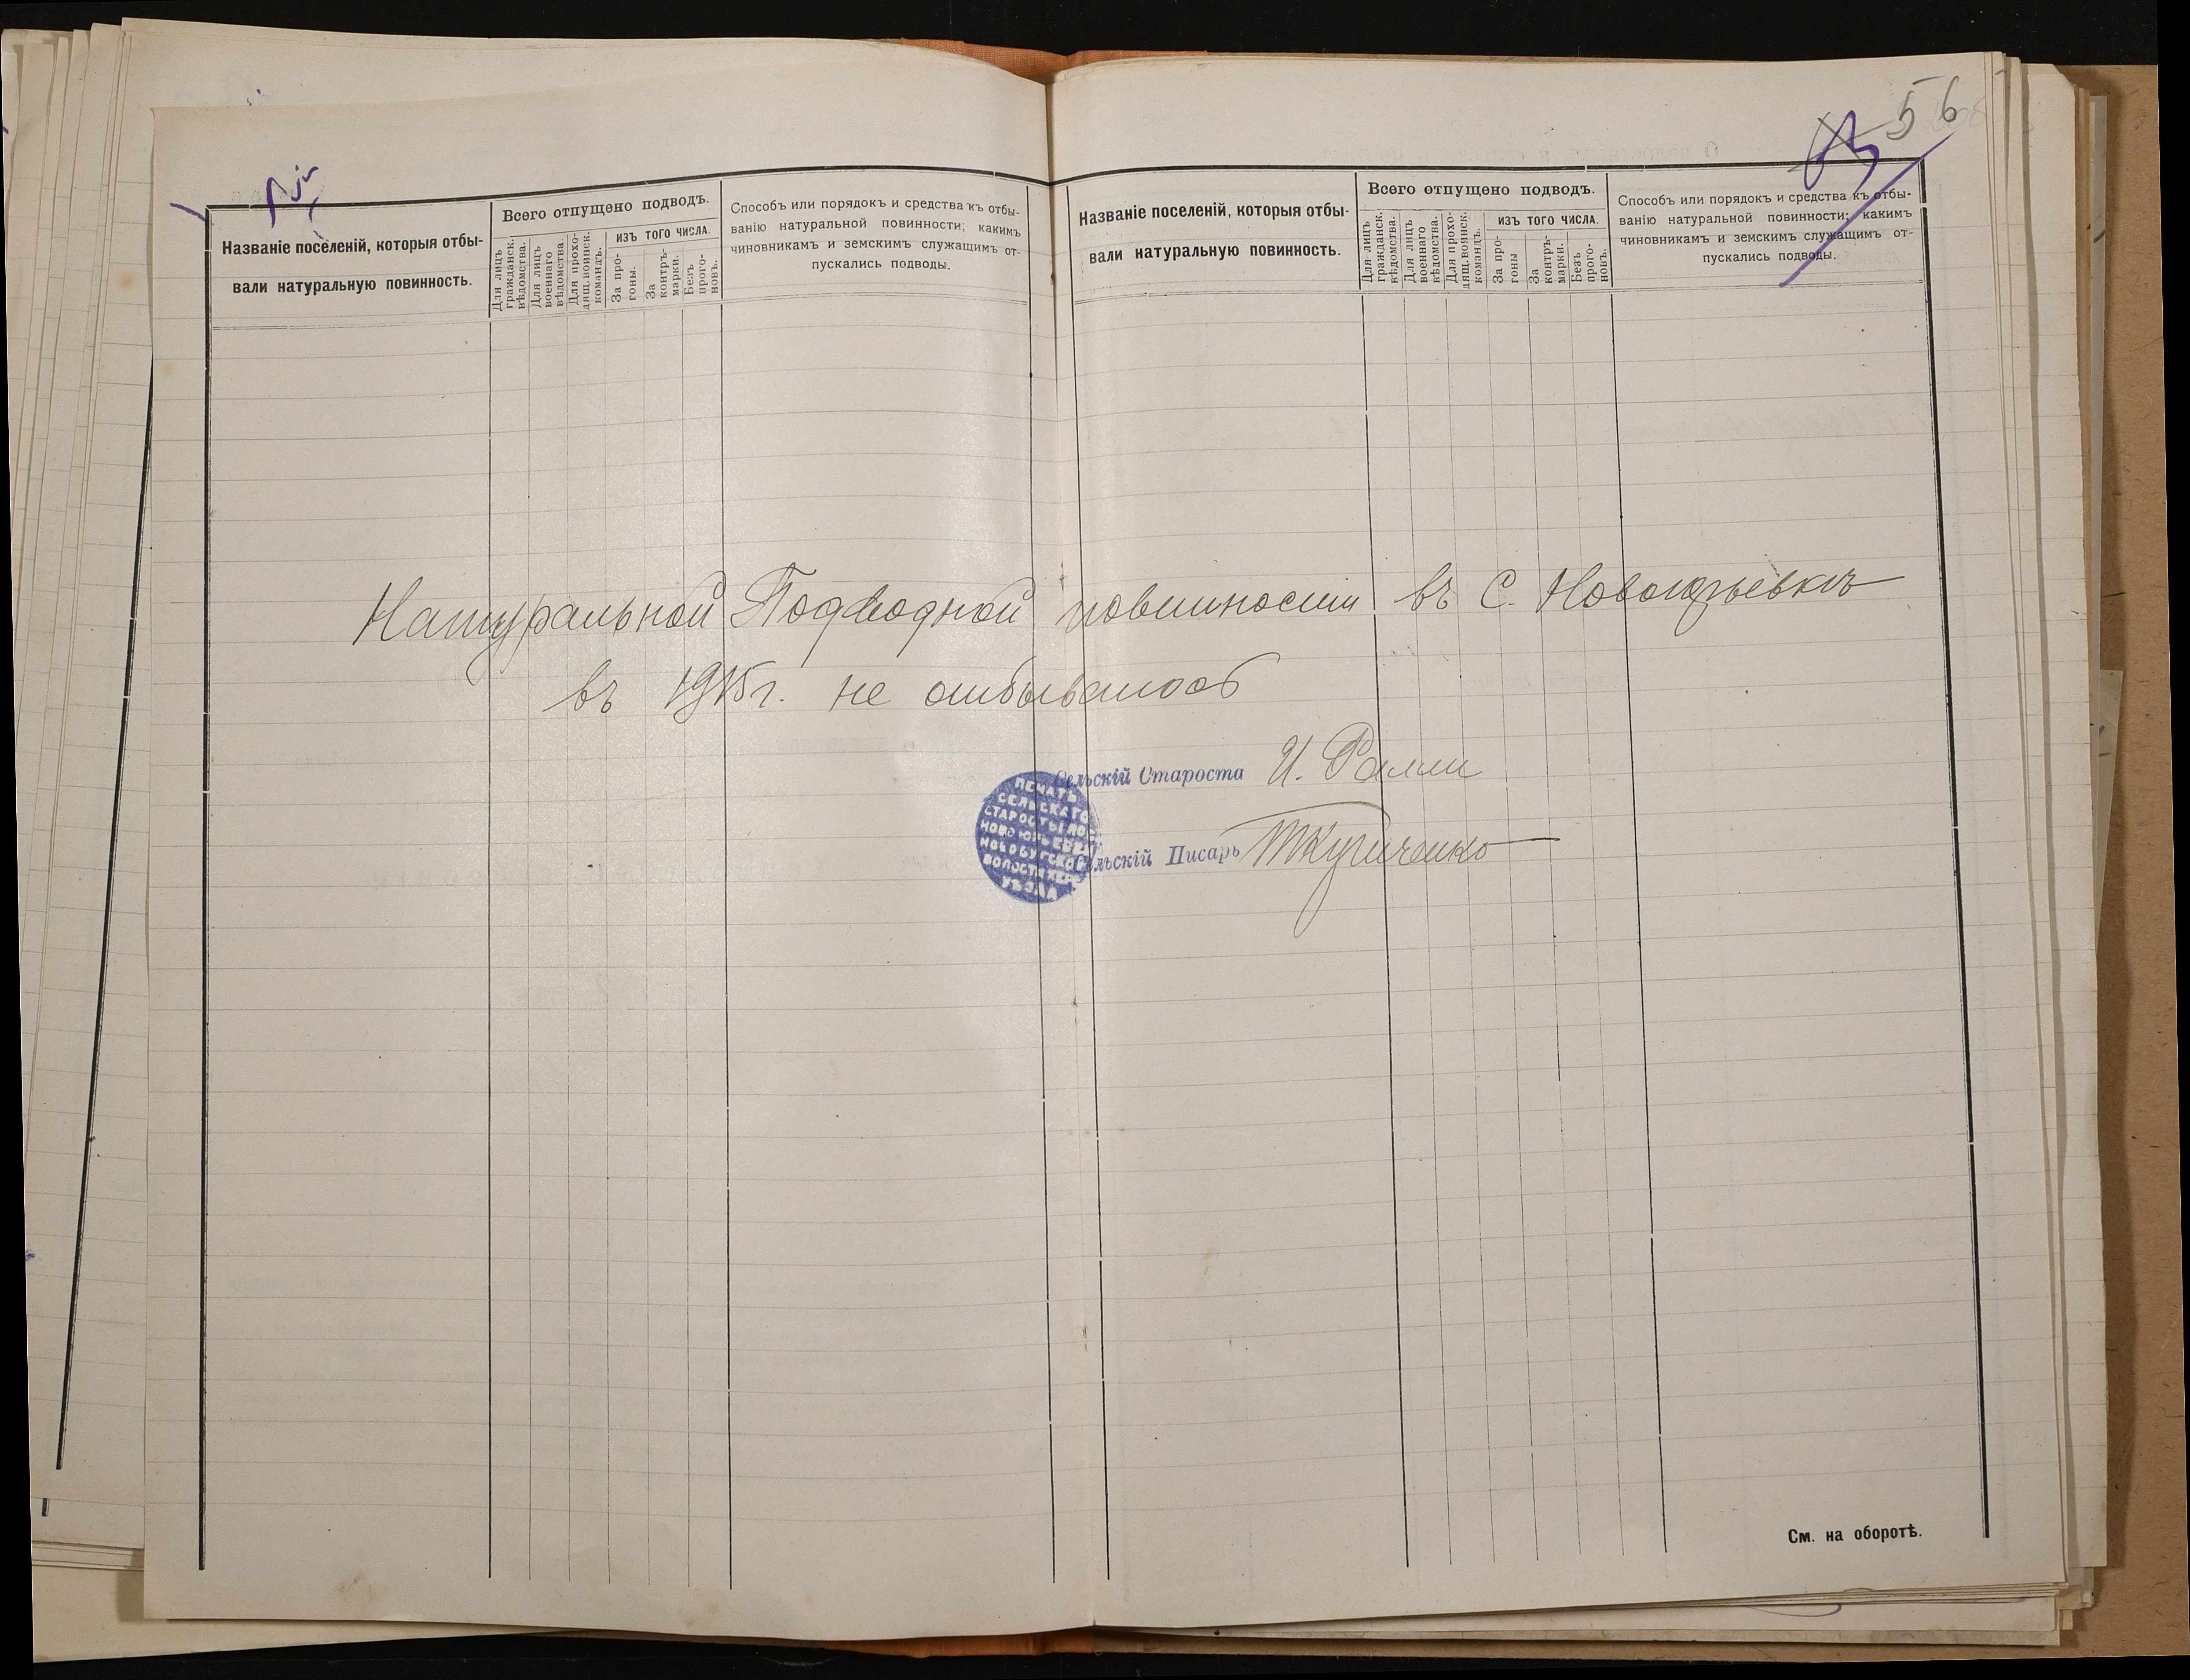 56
Названіе поселеній, которыя отбы-
вали натуральную повинность.
Всего отпущено подводъ.
Для лицъ гражданск. вѣдомства.
Для лицъ военнаго вѣдомства.
Для прохо-дящ. воинск. командъ.
изъ того числа.
За про-гоны.
За контръ-марки.
Безъ прого-новъ.
Способъ или порядокъ и средства къ отбы-
ванію натуральной повинности; какимъ
чиновникамъ и земскимъ служащимъ от-
пускались подводы.
Названіе поселеній, которыя отбы-
вали натуральную повинность.
Всего отпущено подводъ.
Для лицъ гражданск. вѣдомства.
Для лицъ военнаго вѣдомства.
Для прохо-дящ. воинск. командъ.
изъ того числа.
За про-гоны
За контръ-марки.
Безъ прого-новъ.
Способъ или порядокъ и средства къ отбы-
ванію натуральной повинности; какимъ
чиновникамъ и земскимъ служащимъ от-
пускались подводы.
Натуральной Подводной повинности въ С. Новоюрьевкѣ
въ 1915 г. не отбывалось
Сельскій Староста И. Ралли
ПЕЧАТЬ
СЕЛЬСКАГО
СТАРОСТЫ
НОВОЮРЬЕВК
НОВОБУГСКОЙ
ВОЛОСТИ
УѢЗДА
Сельскій Писарь
См. на оборотѣ.